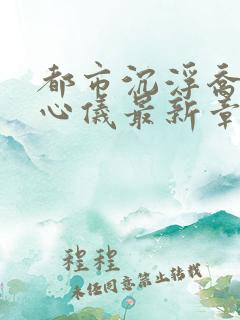 都市沉浮乔
心仪最新章
程程
未经同意禁止转载